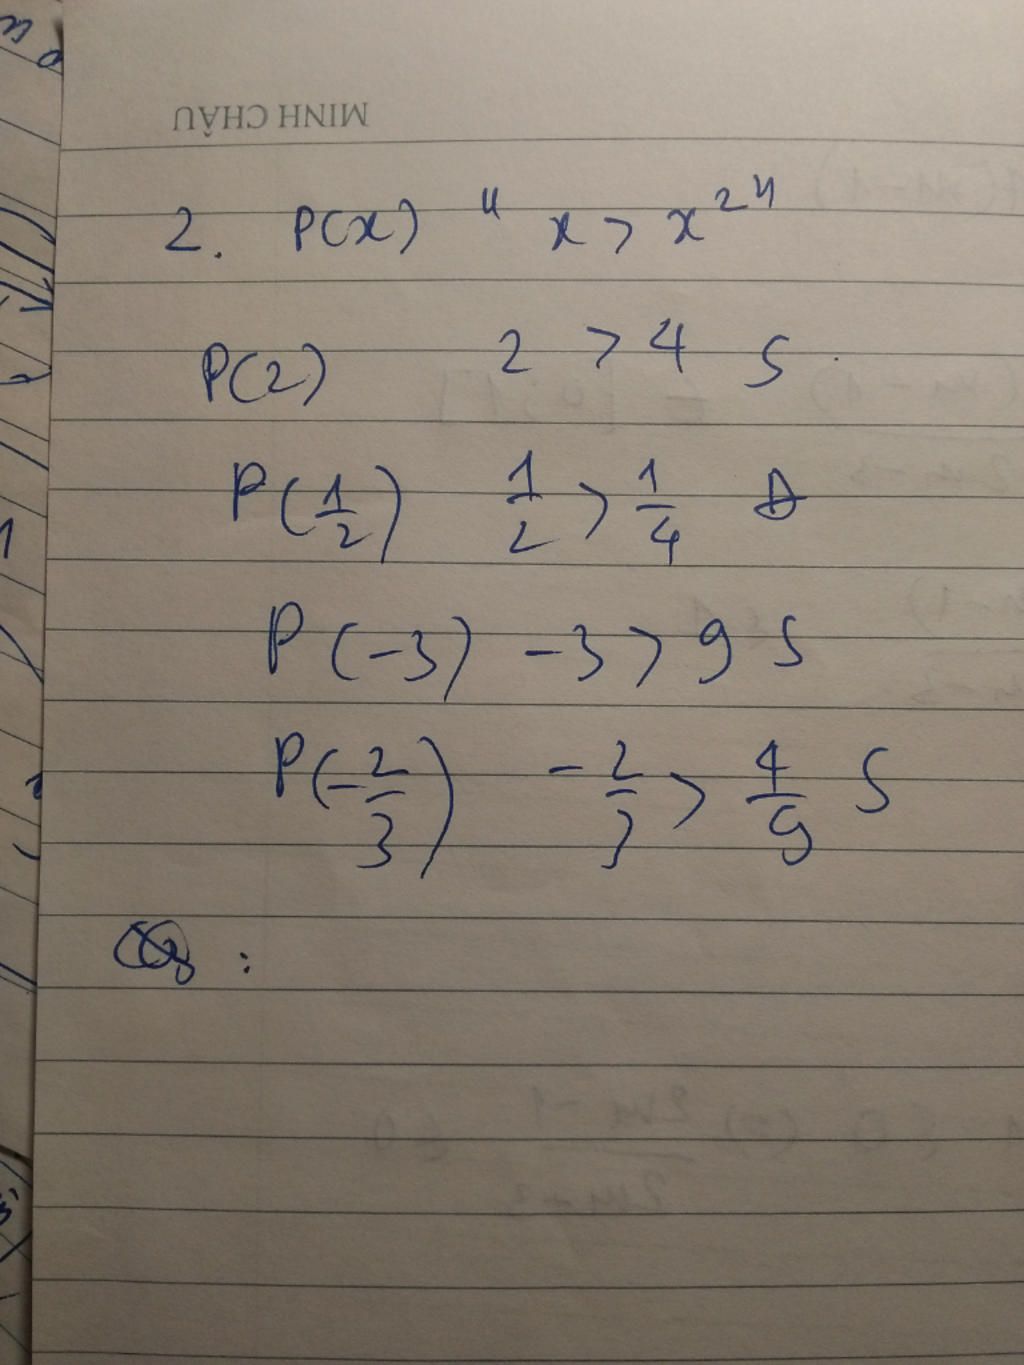 MINH CHÂU
2. P(x) " x > x²"
P(2) 2 > 4 S
P(1/2) 1/2 > 1/4 Đ
P(-3) -3 > 9 S
P(-2/3) -2/3 > 4/9 S